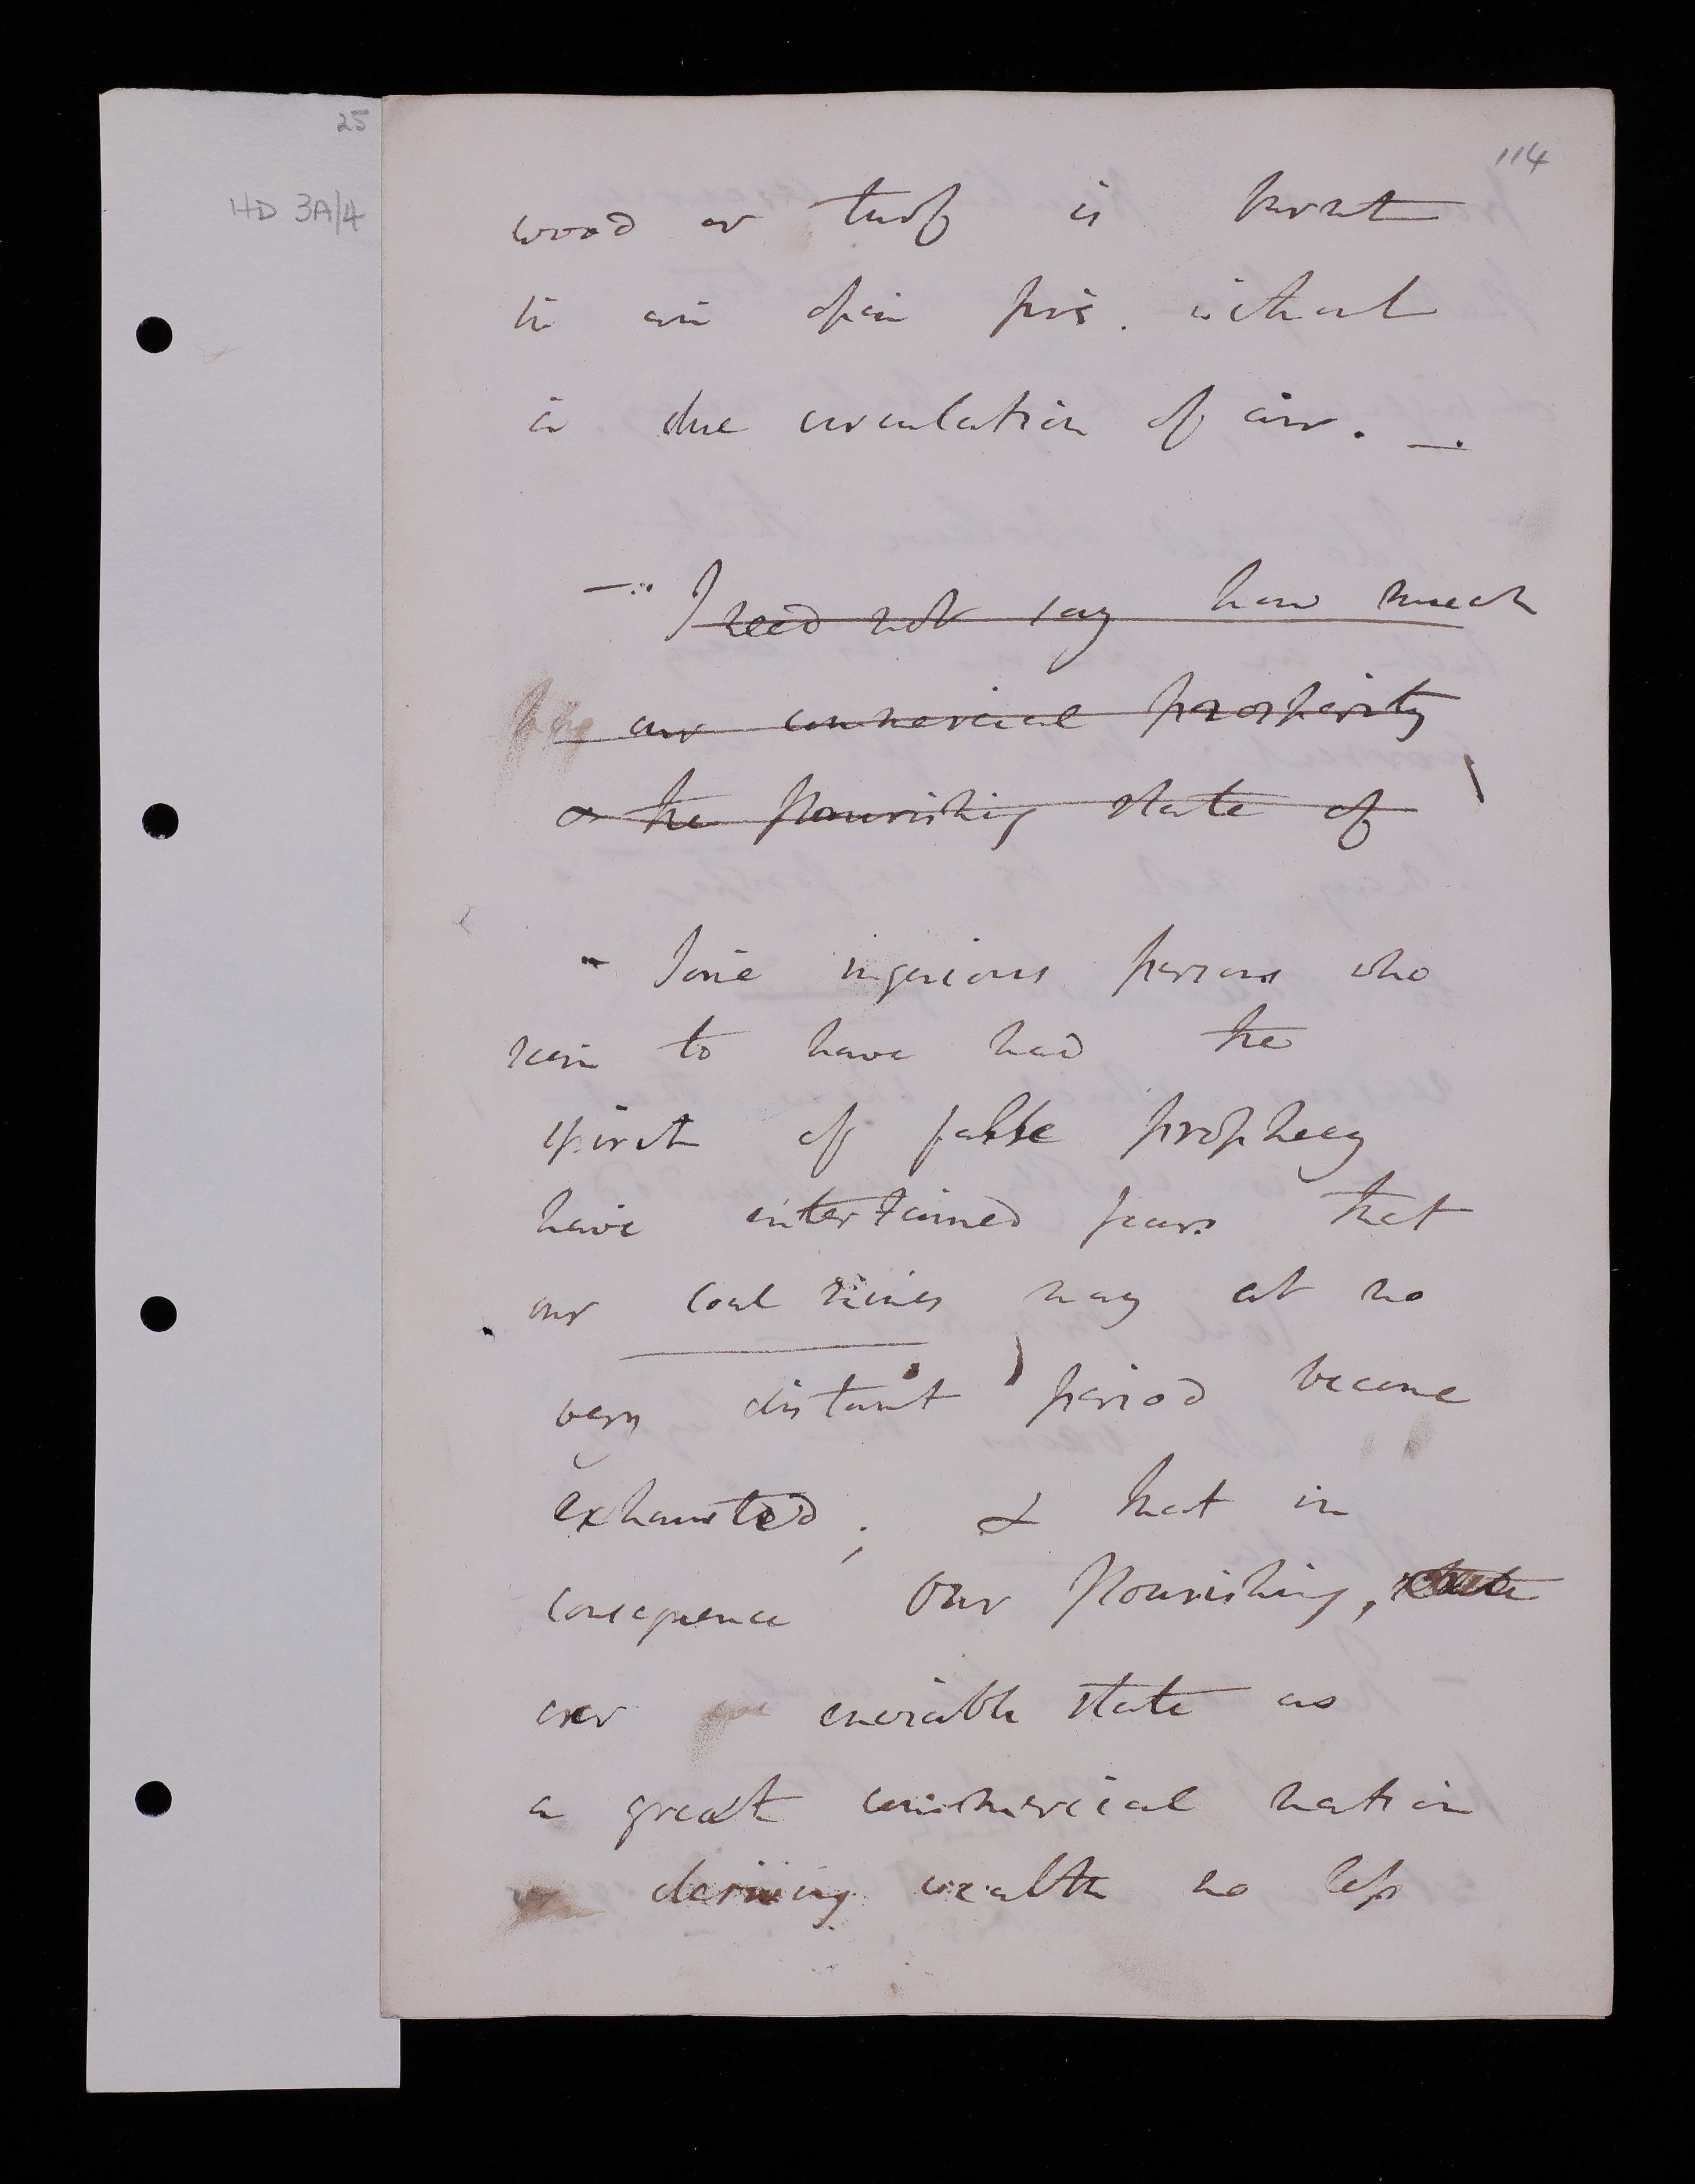 25
HD 3A/4
114
wood or turf is burnt
in an open fire. without
a due circulation of air. —.
— I need not say how much
our commercial prosperity
or the flourishing state of
- Some ingenious persons who
seem to have had the
spirit of false prophecy
have entertained fears that
our coal mines may at no
very distant period become
exhausted; & that in
consequence our flourishing, state
our enviable state as
a great commercial nation
deriving wealth no less